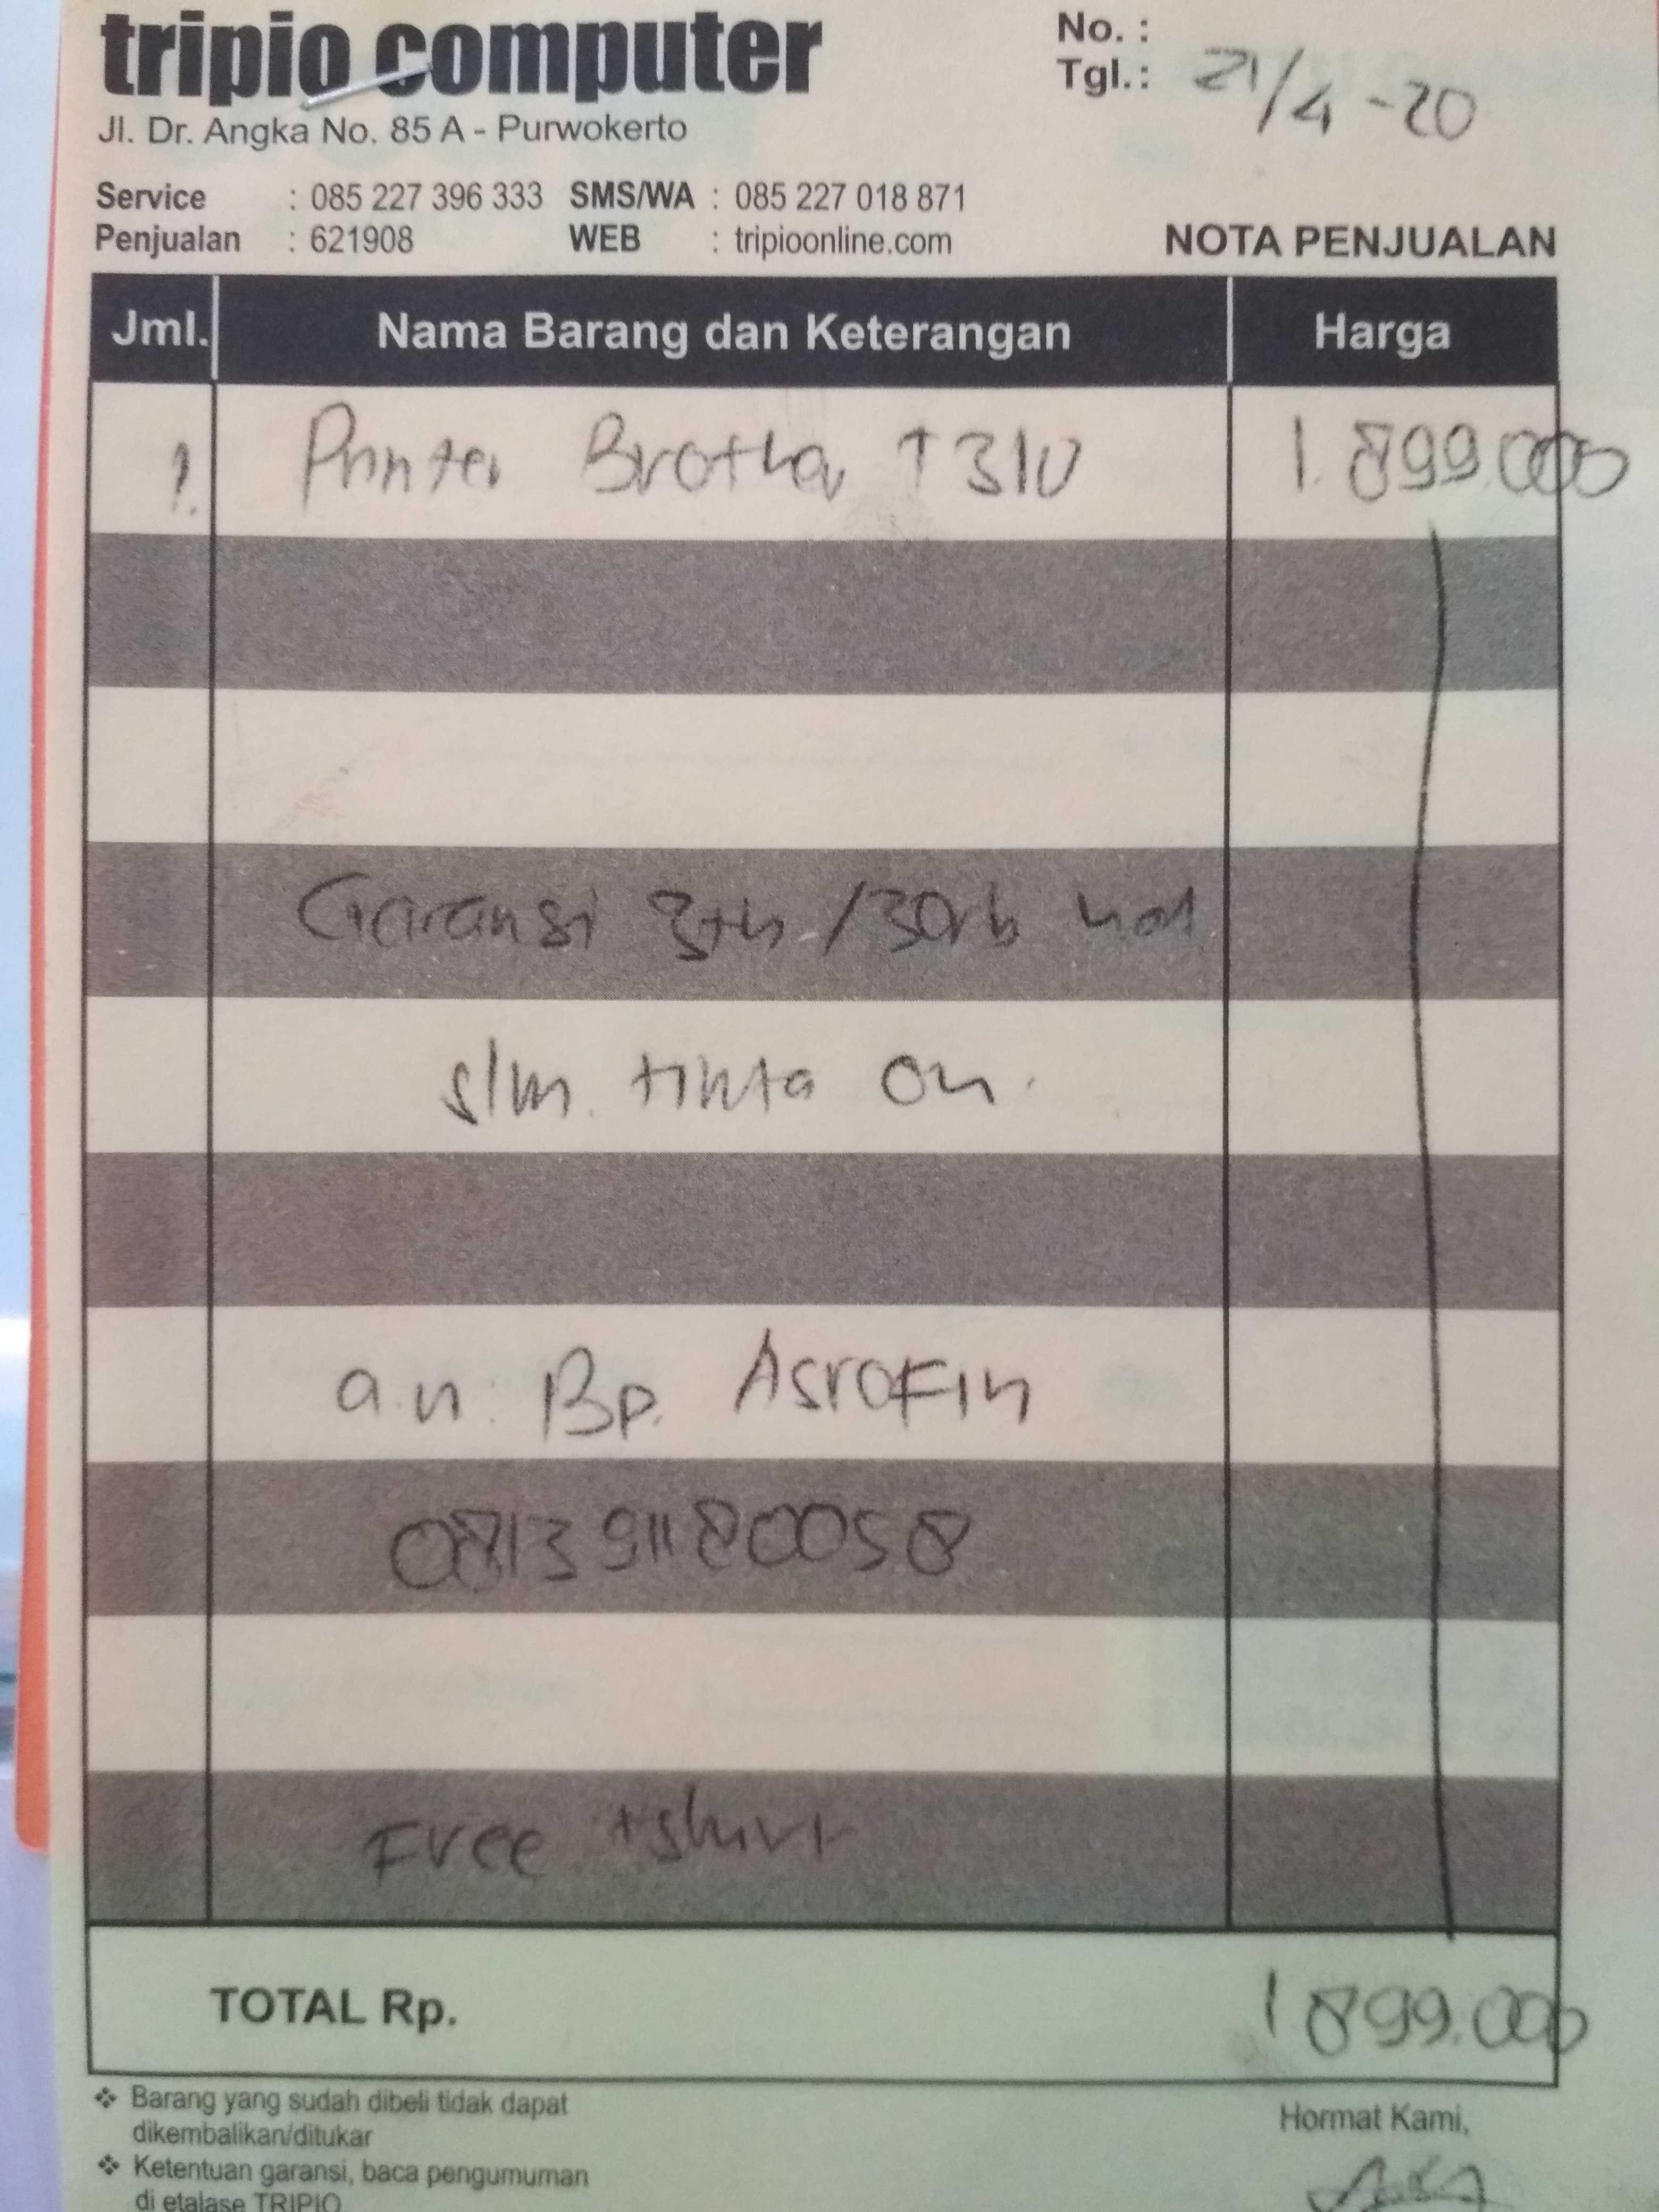 tripio computer
Jl. Dr. Angka No. 85 A - Purwokerto
No. :
Tgl. : 21/4 - 20
Service : 085 227 396 333 SMS/WA : 085 227 018 871
Penjualan : 621908 WEB : tripioonline.com
NOTA PENJUALAN
Jml. Nama Barang dan Keterangan Harga
1. Printer Brother T310 1.899.000
Garansi 3th /30rb hal
slm. tinta ori
a.n : Bp. Asrofin
081391180058
Free tshirt
TOTAL Rp. 1 899.000
❖ Barang yang sudah dibeli tidak dapat
dikembalikan/ditukar
❖ Ketentuan garansi, baca pengumuman
di etalase TRIPIO.
Hormat Kami,